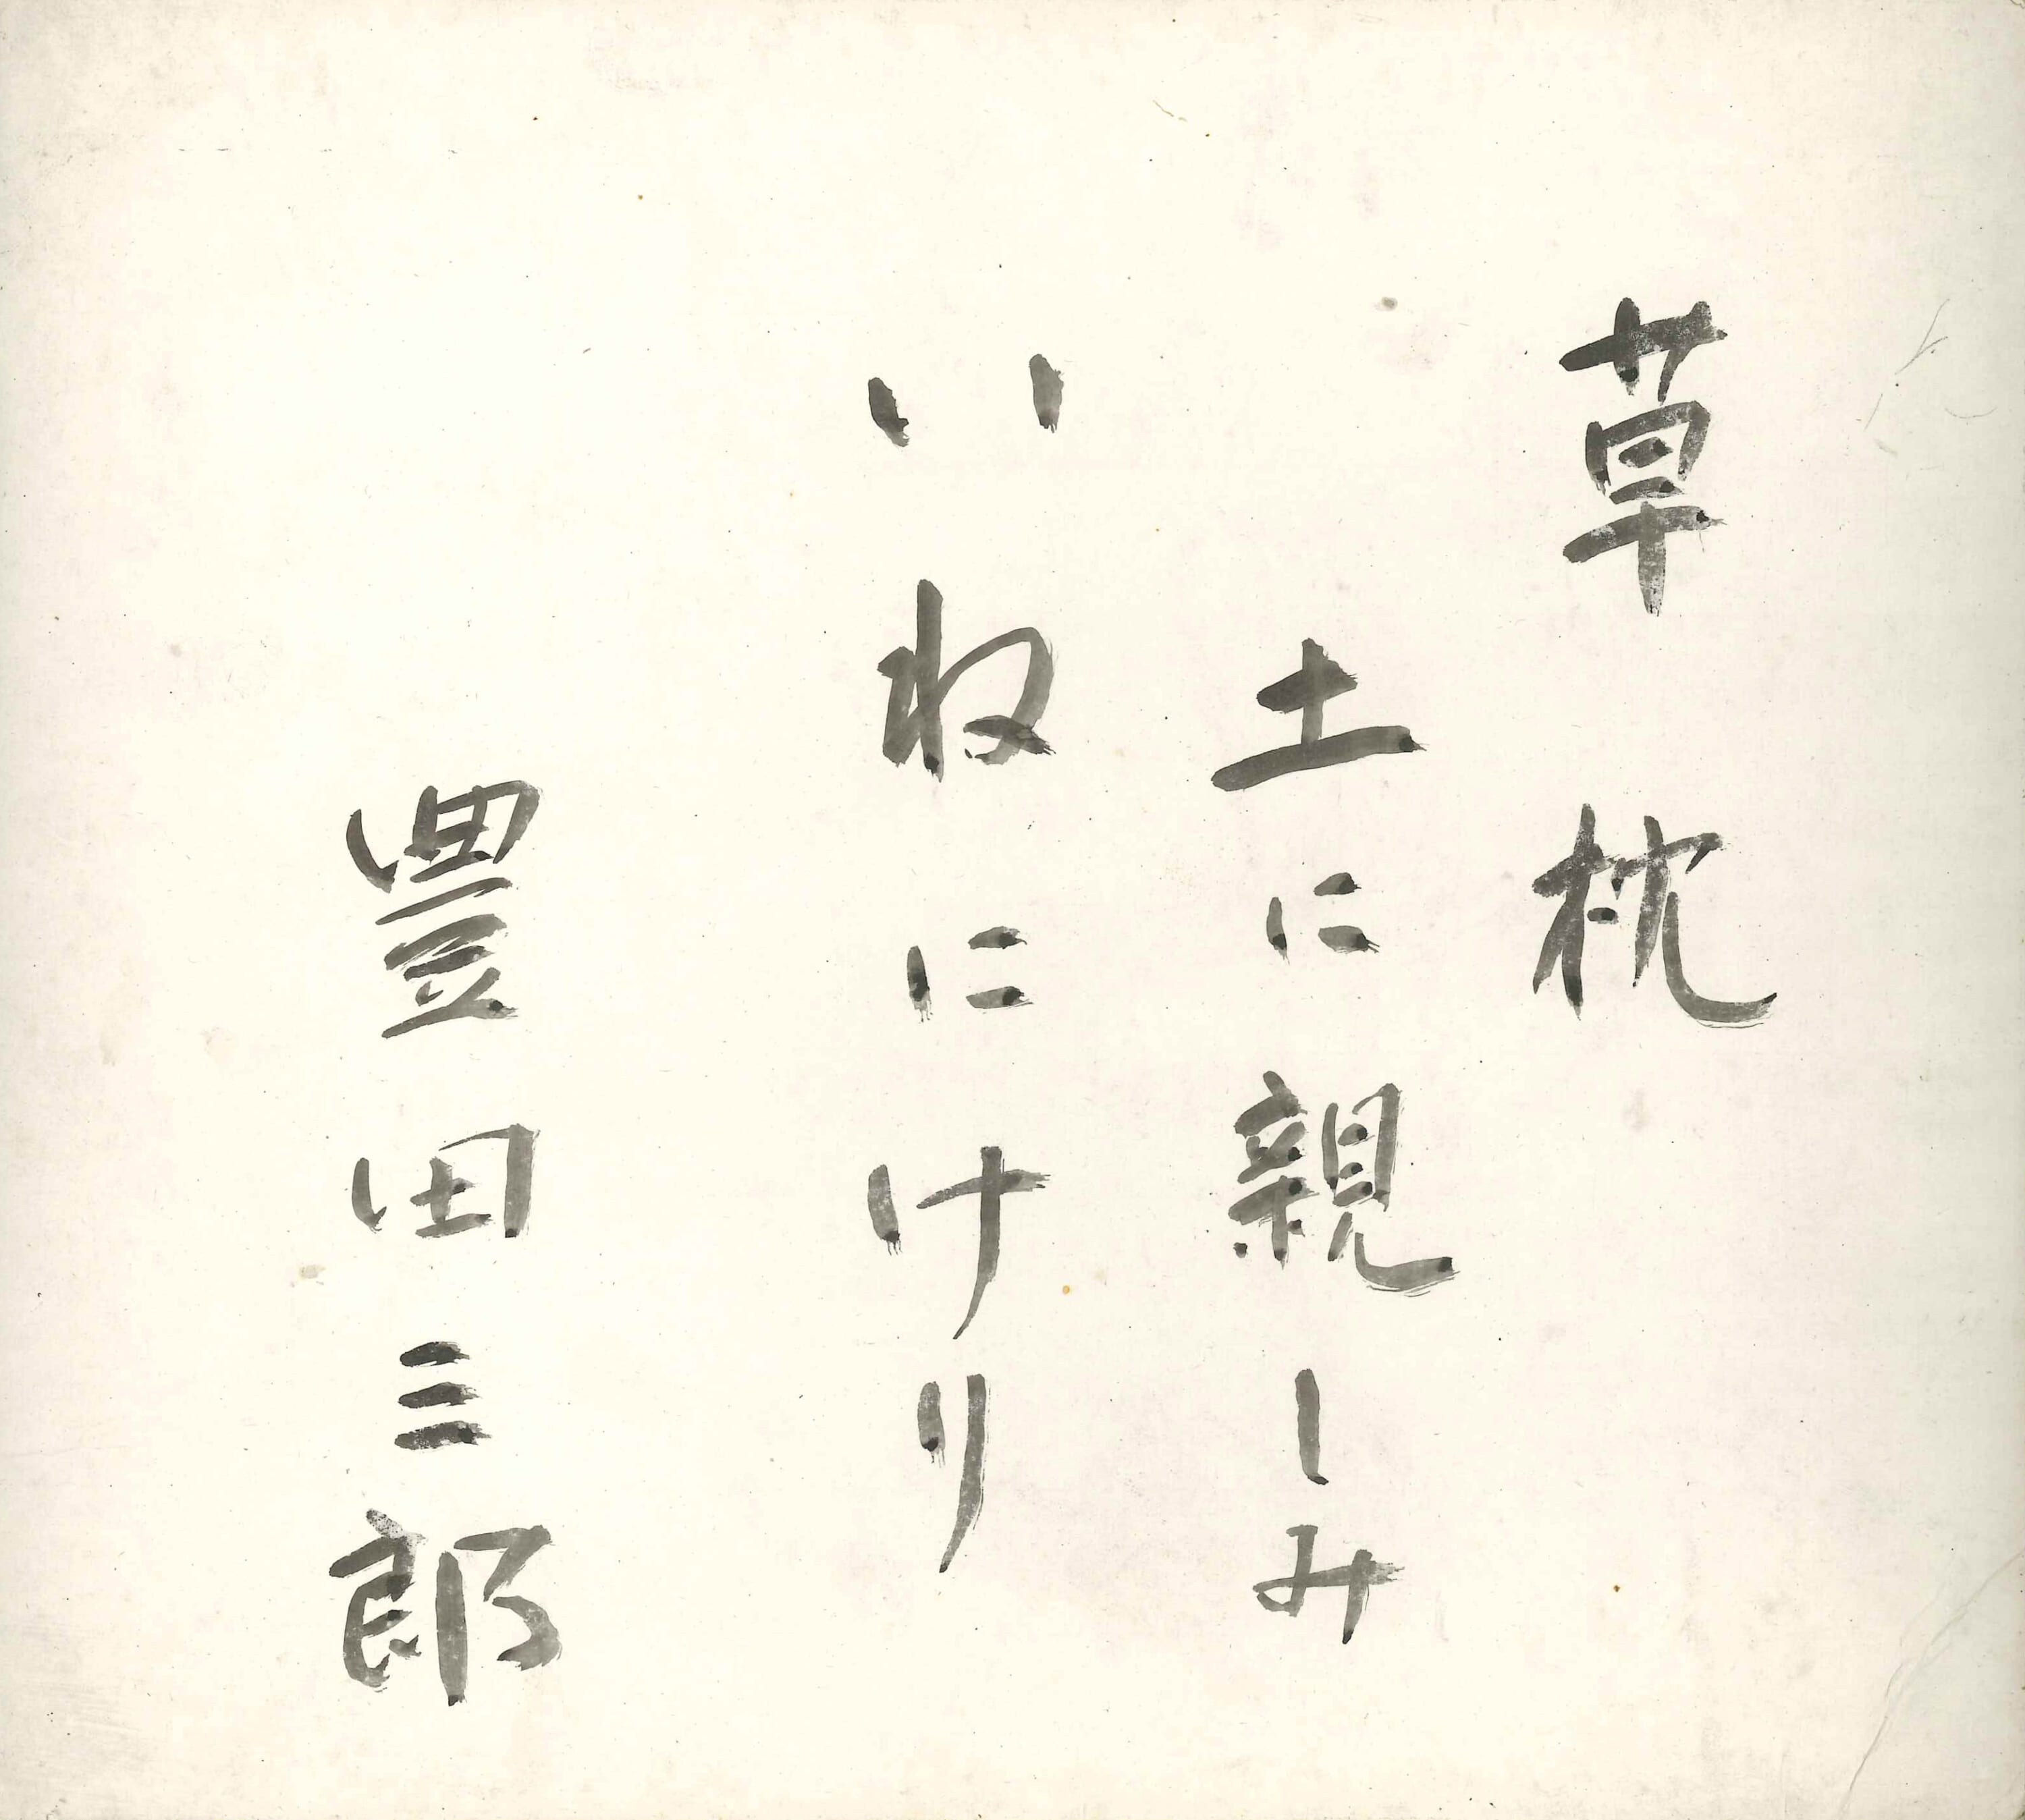 草枕
土に親しみ
いねにけり
豊田三郎